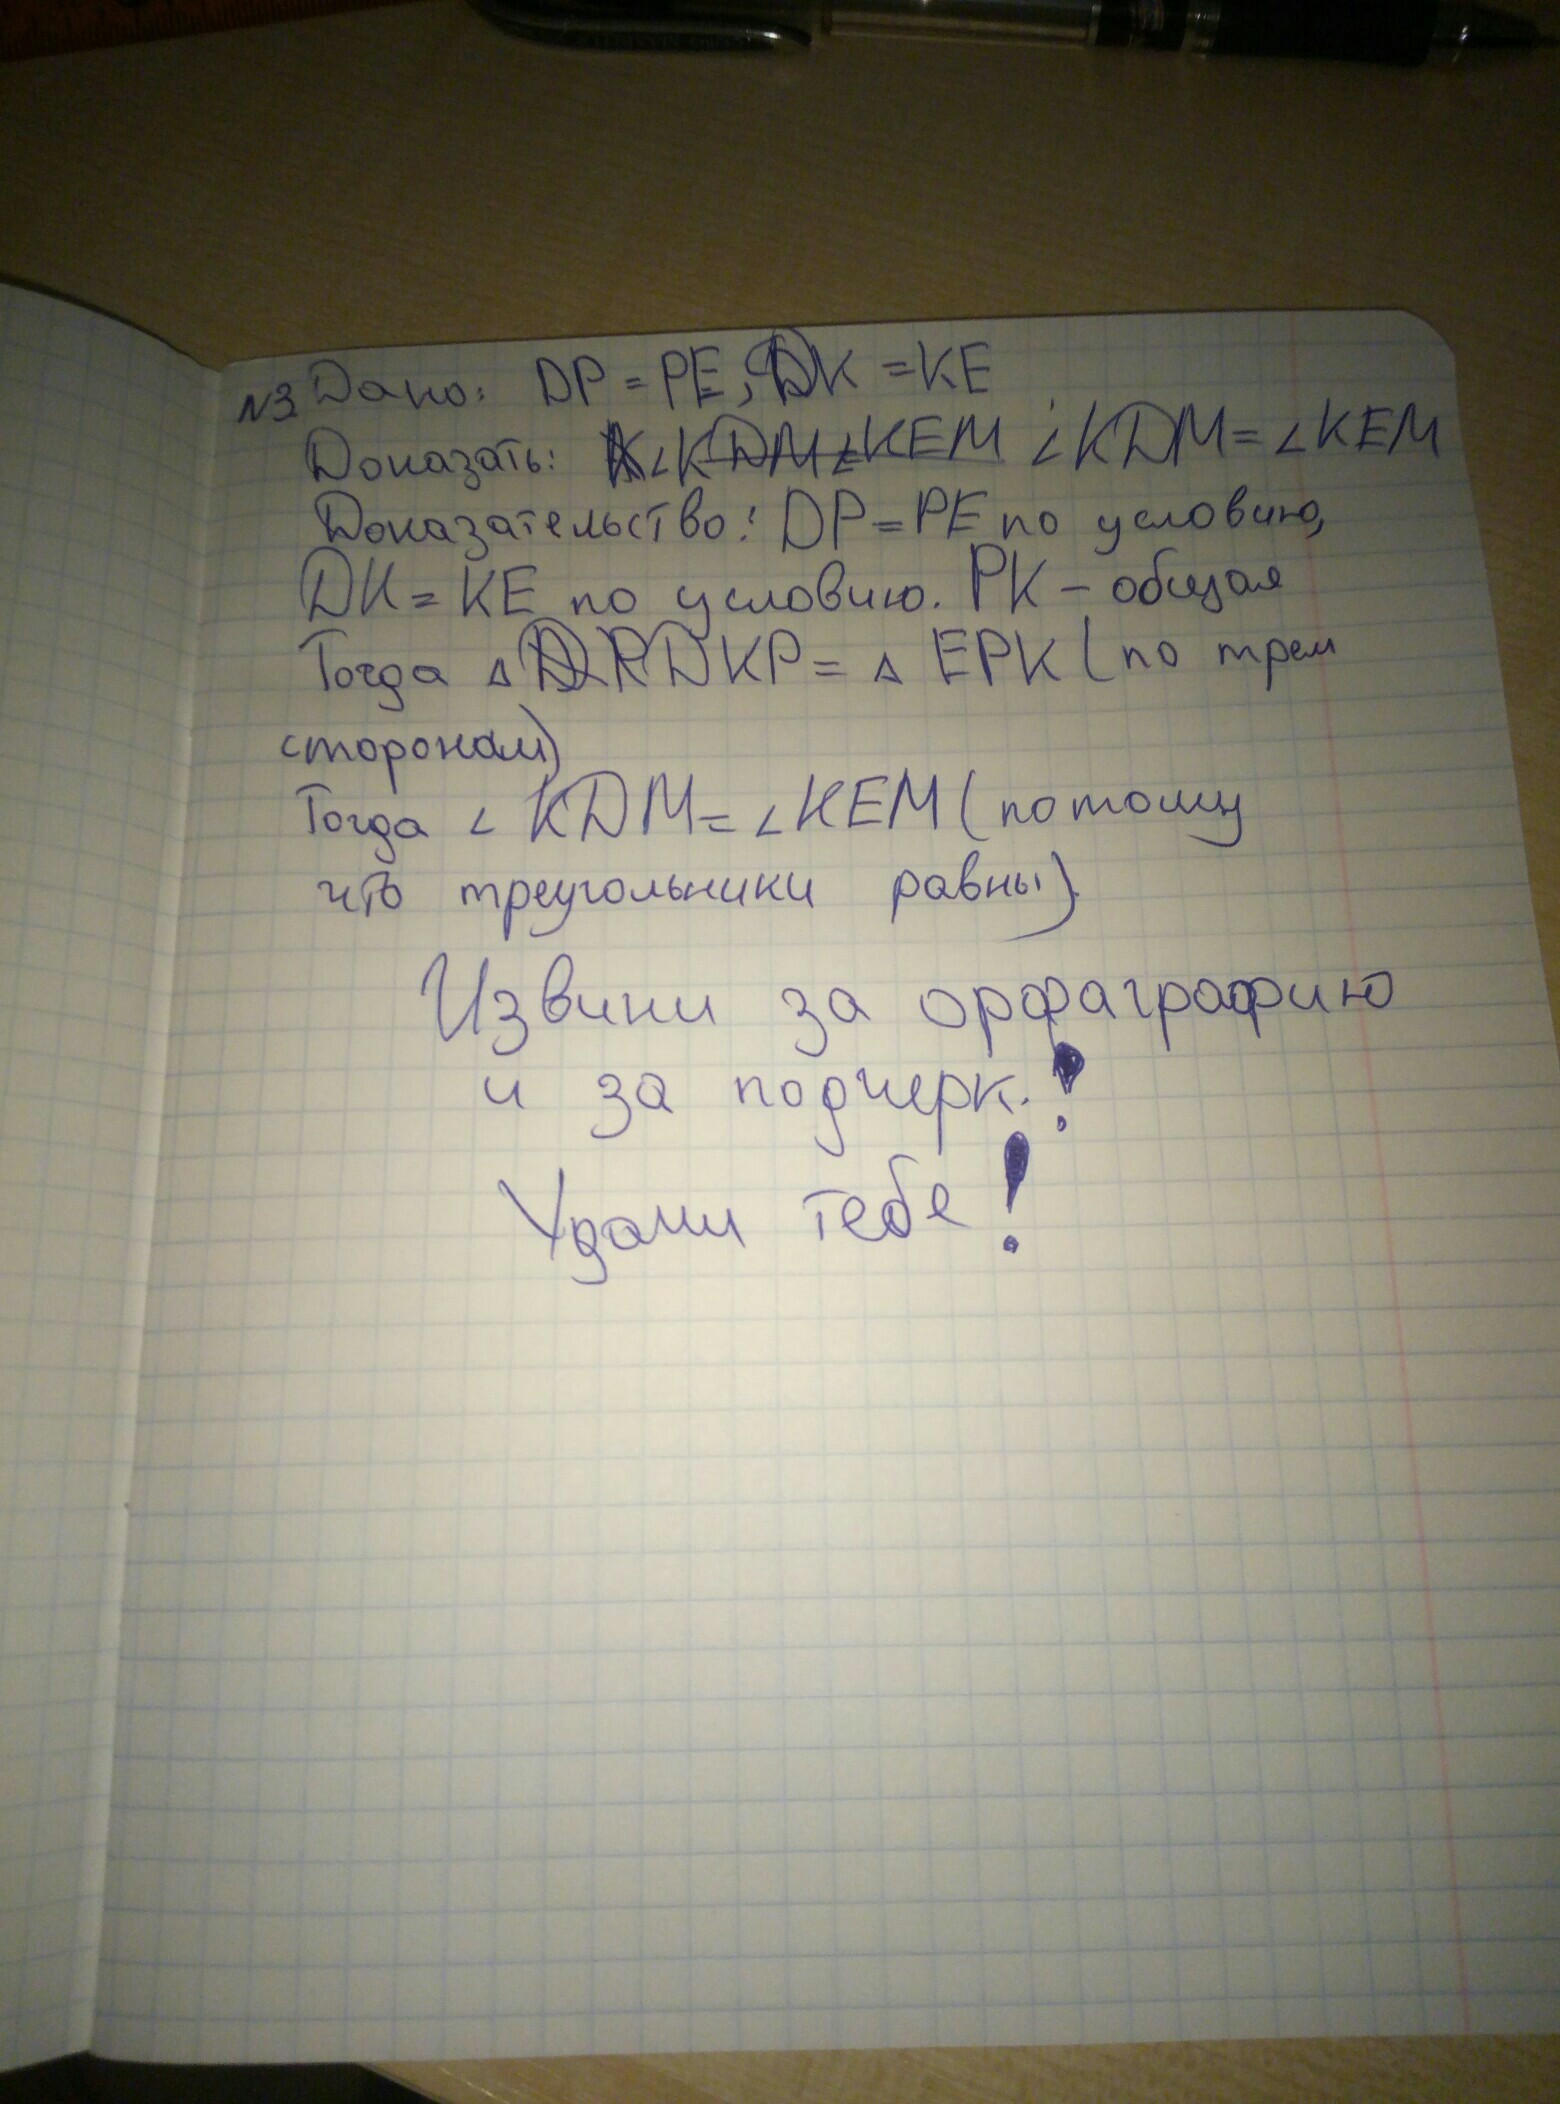 №3 Дано: DP = PE, DK = KE
Доказать: ∠KDM ∠KEM ∠KDM = ∠KEM
Доказательство: DP = PE по условию,
DK = KE по условию. PK – общая
Тогда △ DKP = △ EPK (по трем
сторонам)
Тогда ∠ KDM = ∠KEM (потому
что треугольники равны).
Извини за орфаграфию
и за подчерк.!
Удачи тебе!